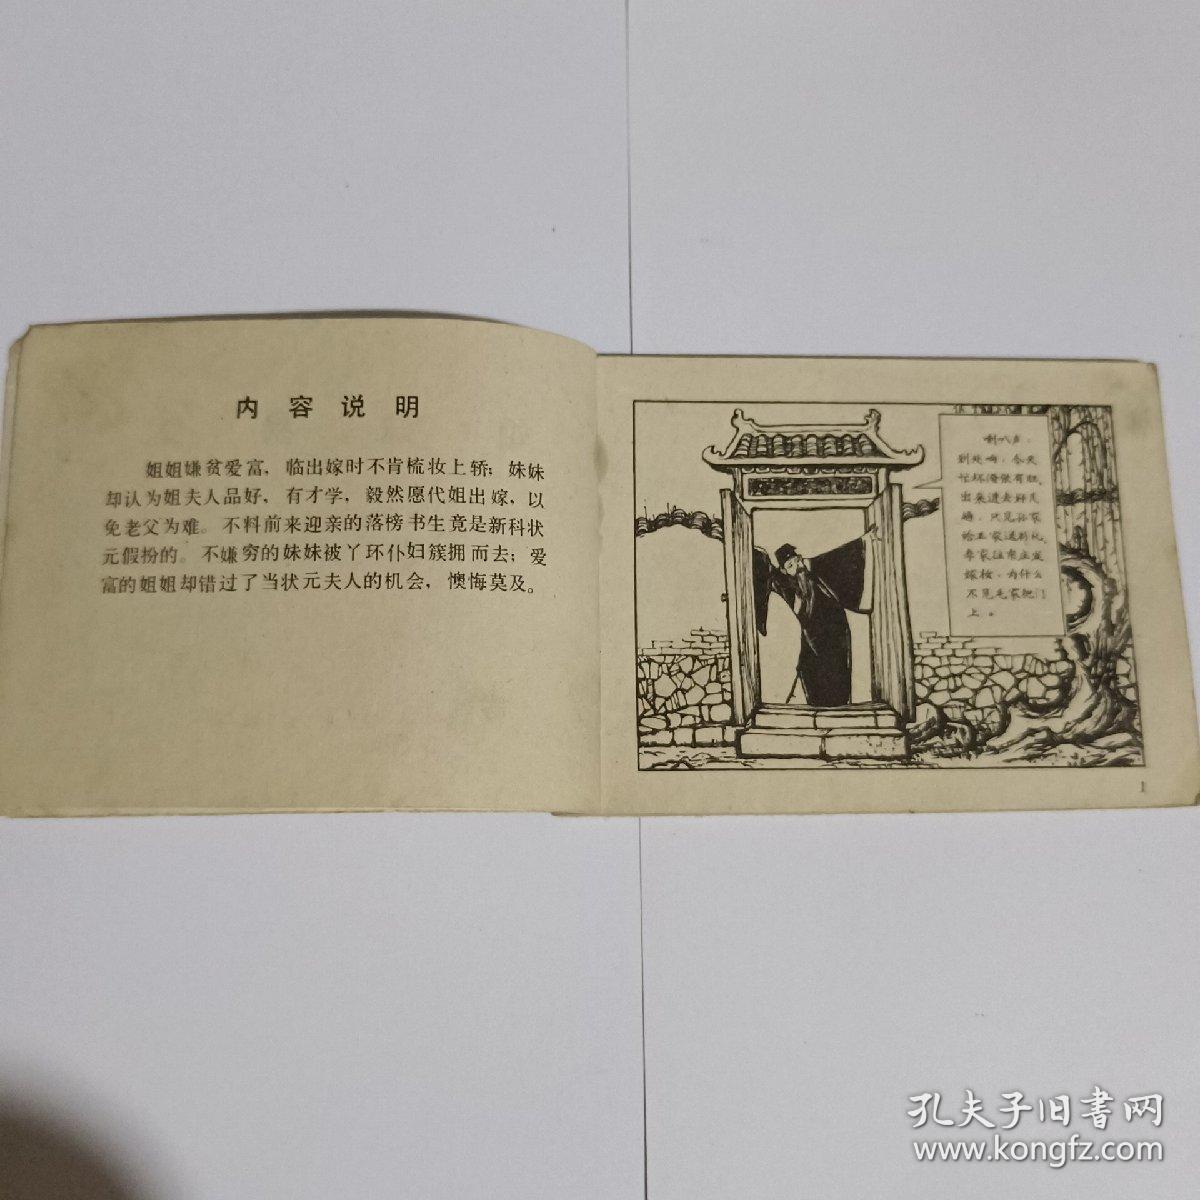 内容说明
姐姐嫌贫爱富，临出嫁时不肯梳妆上轿；妹妹
却认为姐夫人品好，有才学，毅然愿代姐出嫁，以
免老父为难。不料前来迎亲的落榜书生竟是新科状
元假扮的。不嫌穷的妹妹被丫环仆妇簇拥而去；爱
富的姐姐却错过了当状元夫人的机会，懊悔莫及。
喇叭声，
到处响，今天
忙坏
出来进去好几
趟，只见孙家
给王家送彩礼，
李家往
嫁妆，为什么
不见毛家把门
上。
1
孔夫子旧书网
www.kongfz.com